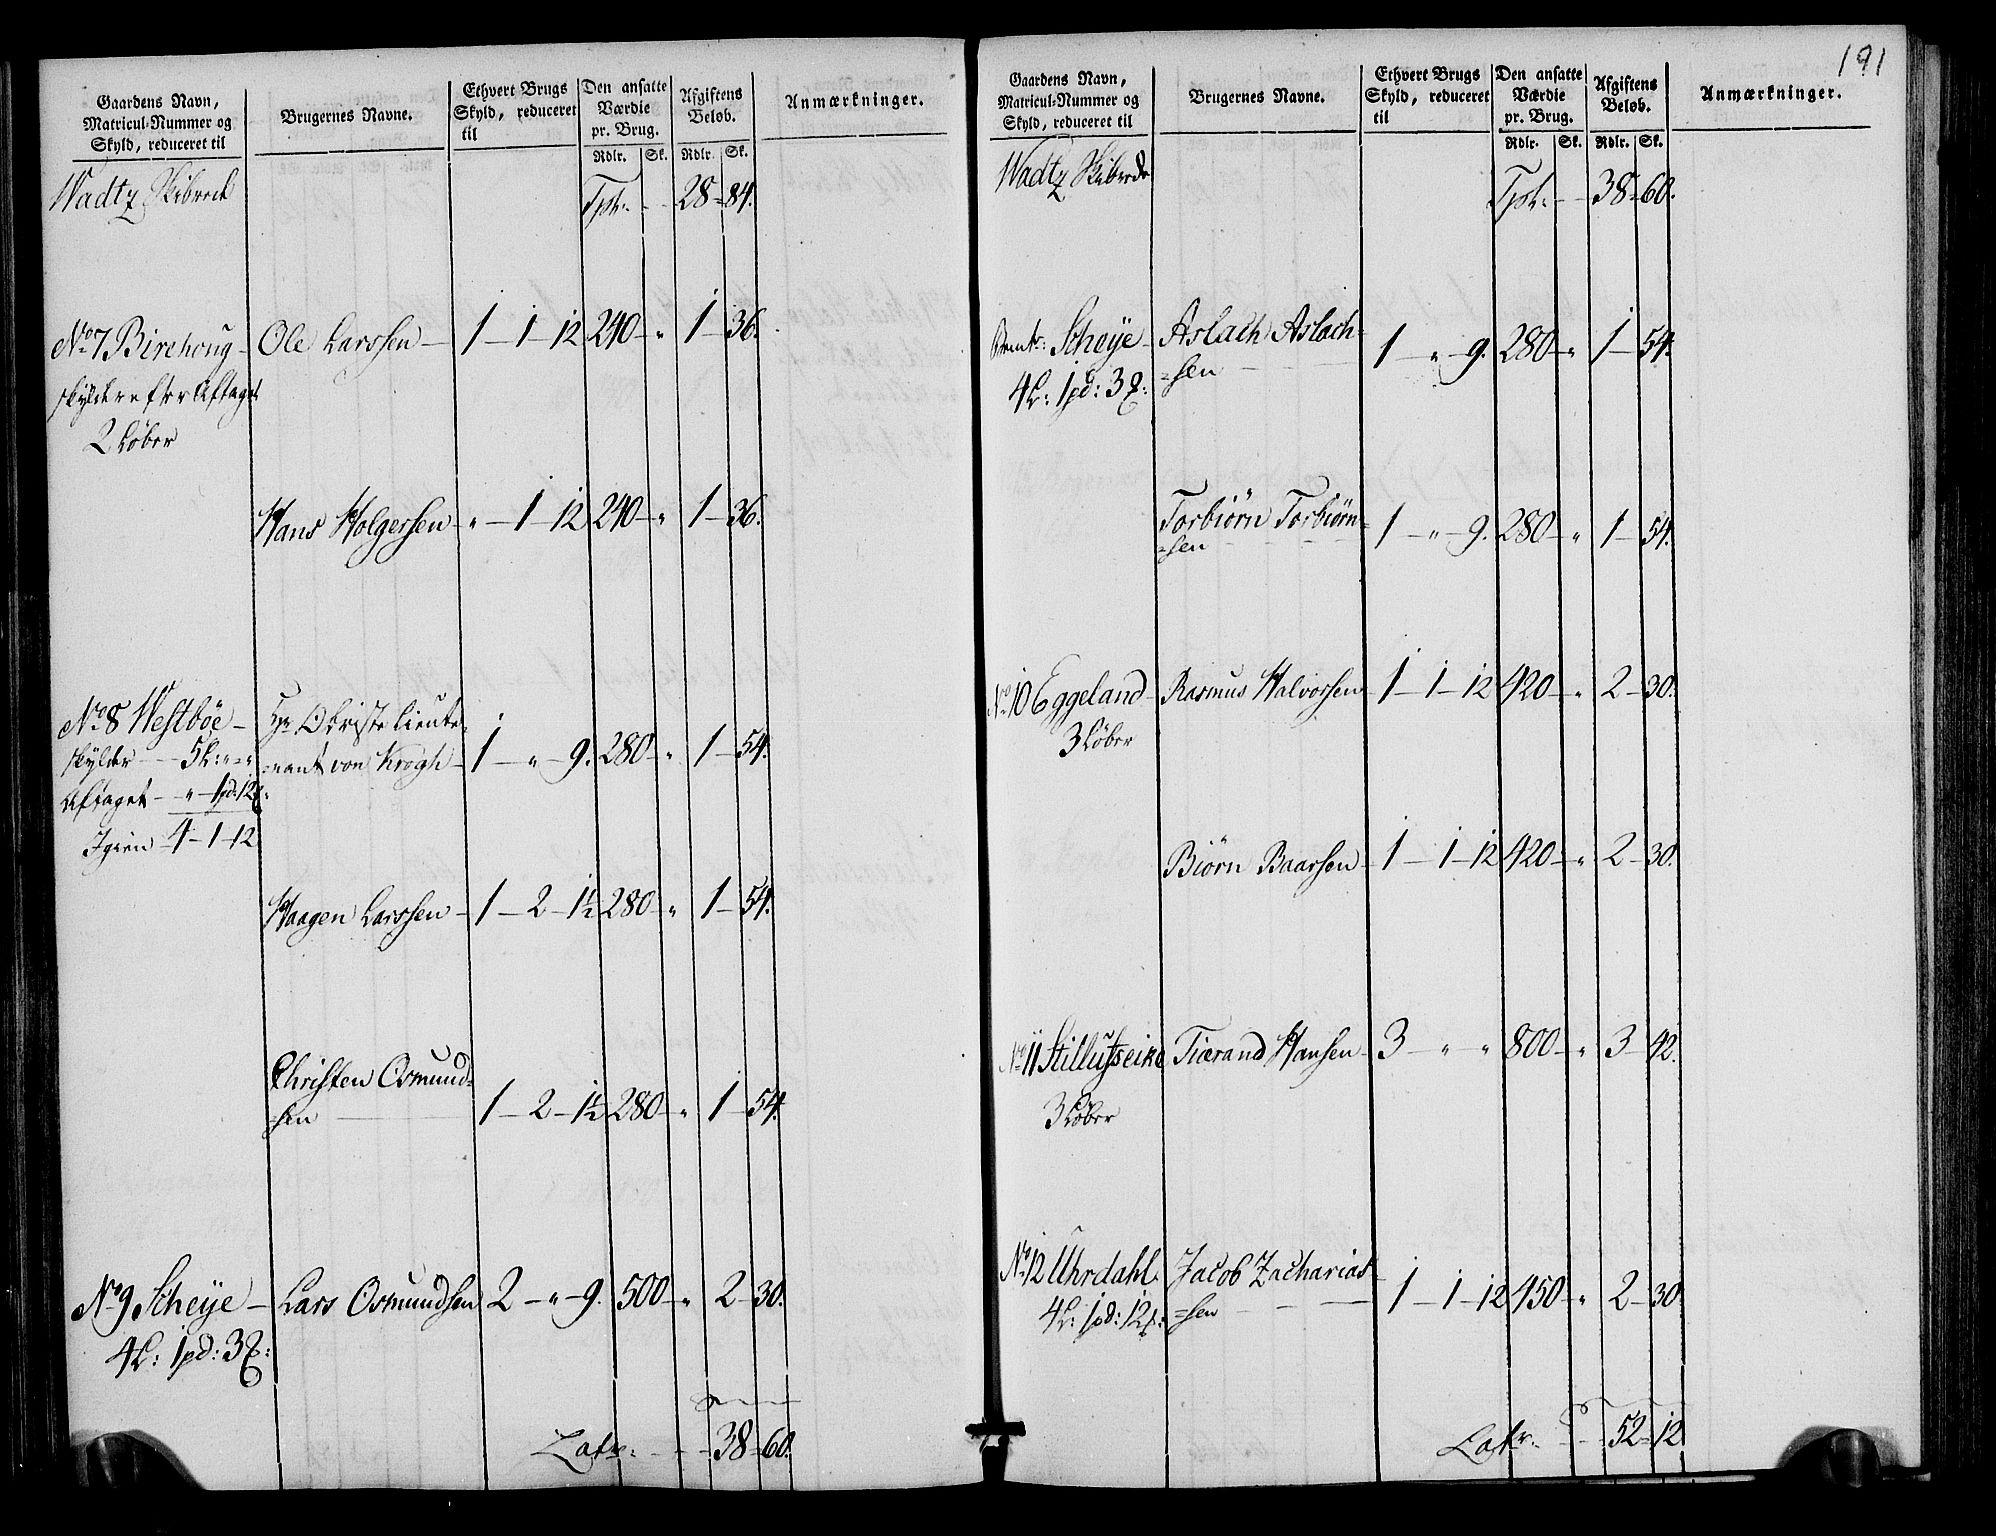 191
Gaardens Navn, Matricul-Nummer og Skyld, reduceret til
Brugernes Navne.
Ethvert Brugs Skyld, reduceret til
Den ansatte Værdie pr. Brug.
Afgiftens Beløb.
Anmærkninger.
Rdlr. Sk. Rdlr. Sk.
Wadtz Skibrede Tpt: 28 - 84.
No 7 Birehoug - Ole Larssen - 1 - 1 - 12 240 - " 1 - 36.
skylder efter Aftaget
2 Løber
Hans Holgersen - " - 1 - 12 240 - " 1 - 36.
No 8 Westbøe - Hr Obriste Lieute-
skylder - 5 L: " - " =nant von Krogh - 1 - " - 9. 280 - " 1 - 54.
Aftaget - " - 1 pd: 12
Igien 4 - 1 - 12
Haagen Larssen - 1 - 2 - 1½ 280 - " 1 - 54.
Christen Osmund-
=sen 1 - 2 - 1½ 280 - " 1 - 54.
No 9 Scheye - Lars Osmundsen 2 - " - 9. 500 - " 2 - 30.
4 L: 1 pd: 3
Latr: 38 - 60.
Gaardens Navn, Matricul-Nummer og Skyld, reduceret til
Brugernes Navne.
Ethvert Brugs Skyld, reduceret til
Den ansatte Værdie pr. Brug.
Afgiftens Beløb.
Anmærkninger.
Rdlr. Sk. Rdlr. Sk.
Wadtz Skibrede Tpt: 38 - 60.
Scheye - Aslach Aslach-
=sen 1 - " - 9. 280 - " 1 - 54.
4 L: 1 pd: 3
Torbiørn Torbiørn=
=sen 1 - " - 9. 280 - " 1 - 54.
No 10 Eggeland - Rasmus Halvorsen 1 - 1 - 12 420 - " 2 - 30.
3 Løber
Biørn Baarsen - 1 - 1 - 12 420 - " 2 - 30.
No 11 Stillufseike Tierand Hansen - 3 - " - " 800 - " 3 - 42.
3 Løber
No 12 Uhrdahl. Jacob Zacharias
4 L: 1 pd: 12 =sen 1 - 1 - 12 450 - " 2 - 30.
Latr: 52 - 12